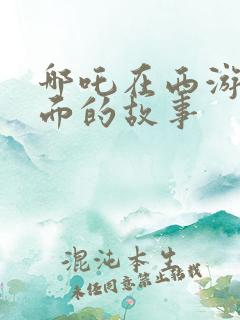 哪吒在西游
而的故事
混沌本生
未经同意禁止转载